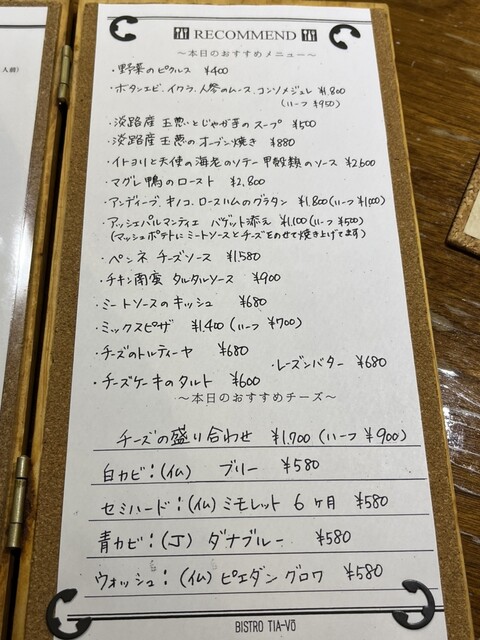 RECOMMEND
～本日のおすすめメニュー～
・野菜のピクルス ¥400
・ボタンエビ、イクラ、人参のムース、コンソメジュレ ¥1,800
(ハーフ ¥950)
・淡路産 玉葱とじゃが芋のスープ ¥500
・淡路産 玉葱のオーブン焼き ¥880
・イトヨリと天使の海老のソテー 甲殻類のソース ¥2,600
・マグレ鴨のロースト ¥2,800
・アンディーブ、キノコ、ロースハムのグラタン ¥1,800(ハーフ ¥1,000)
・アッシェパルマンティエ バゲット添え ¥1,100(ハーフ ¥500)
(マッシュポテトにミートソースとチーズをのせて焼き上げてます)
・ペンネ チーズソース ¥1,580
・チキン南蛮 タルタルソース ¥900
・ミートソースのキッシュ ¥680
・ミックスピザ ¥1,400(ハーフ ¥700)
・チーズのトルティーヤ ¥680
・レーズンバター ¥680
・チーズケーキのタルト ¥600
～本日のおすすめチーズ～
チーズの盛り合わせ ¥1,700(ハーフ ¥900)
白カビ：(仏) ブリー ¥580
セミハード：(仏)ミモレット 6ヶ月 ¥580
青カビ：(J) ダナブルー ¥580
ウォッシュ：(仏)ピエダングロワ ¥580
BISTRO TIA-Vō